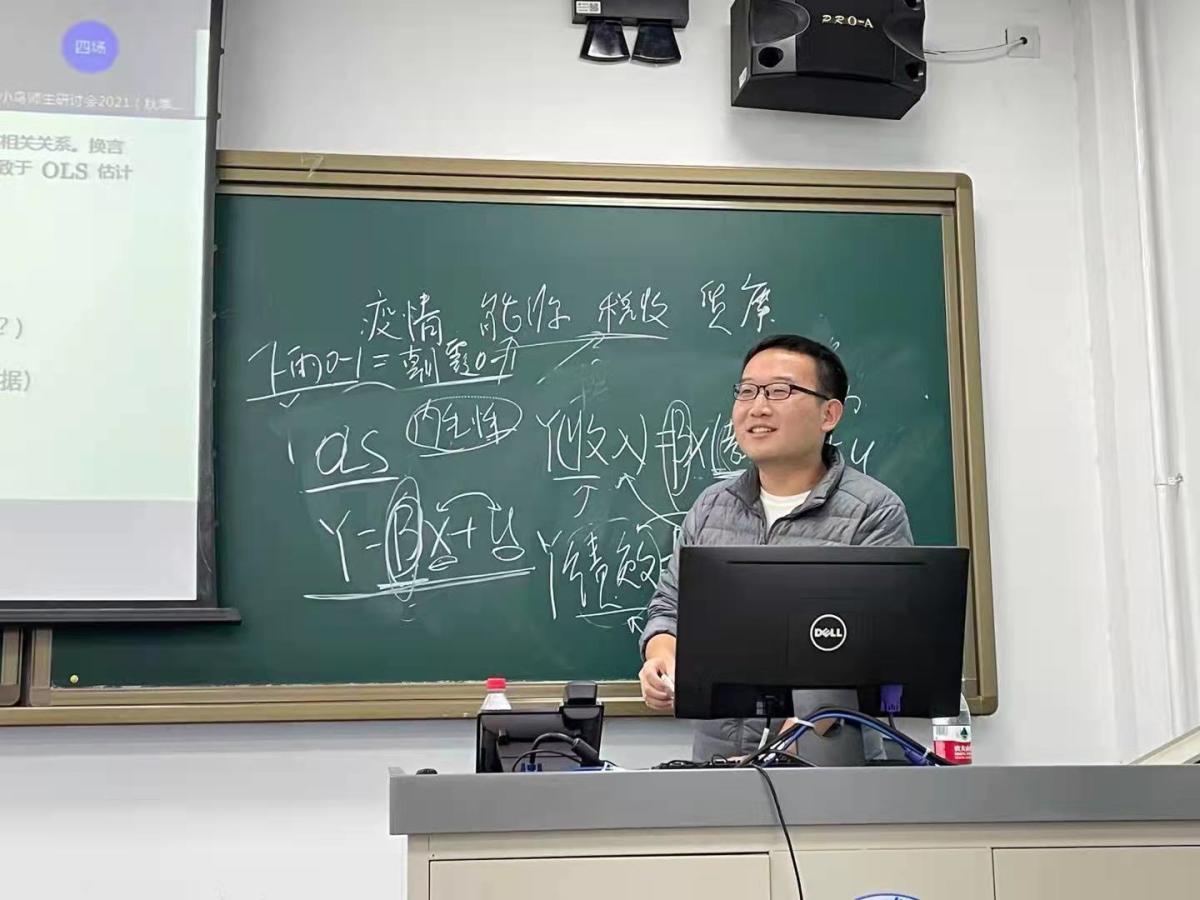 四场
小鸟师生研讨会2021（秋季...
相关关系。换言
致于 OLS 估计
？）
据）
PRO-A
疫情 能源 税收
下雨0-1=
OLS 内生性
Y(收入)=βX
Y=βx+u
Y绩效=
DELL